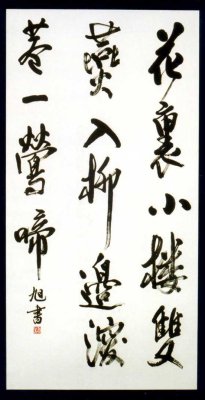 花裏小樓雙
燕入柳邊深
巷一鶯啼
旭書